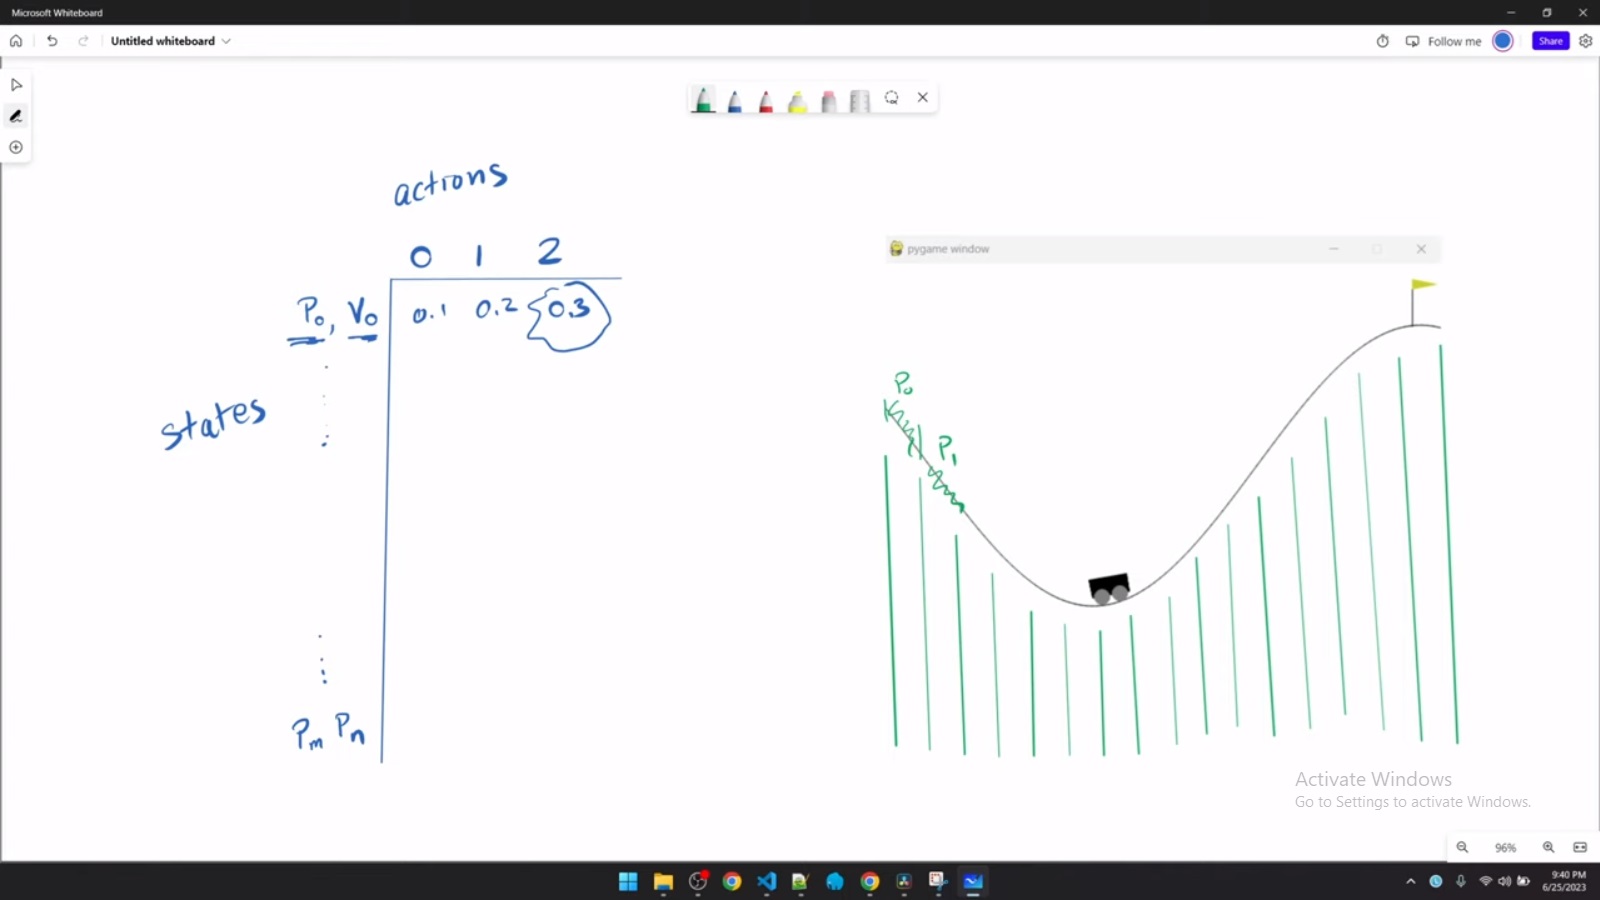 Microsoft Whiteboard
Untitled whiteboard
Follow me
Share
actions
0 1 2
P₀, V₀ 0.1 0.2 0.3
states
Pₘ Pₙ
pygame window
P₀
P₁
Activate Windows
Go to Settings to activate Windows.
96%
9:40 PM
6/25/2023